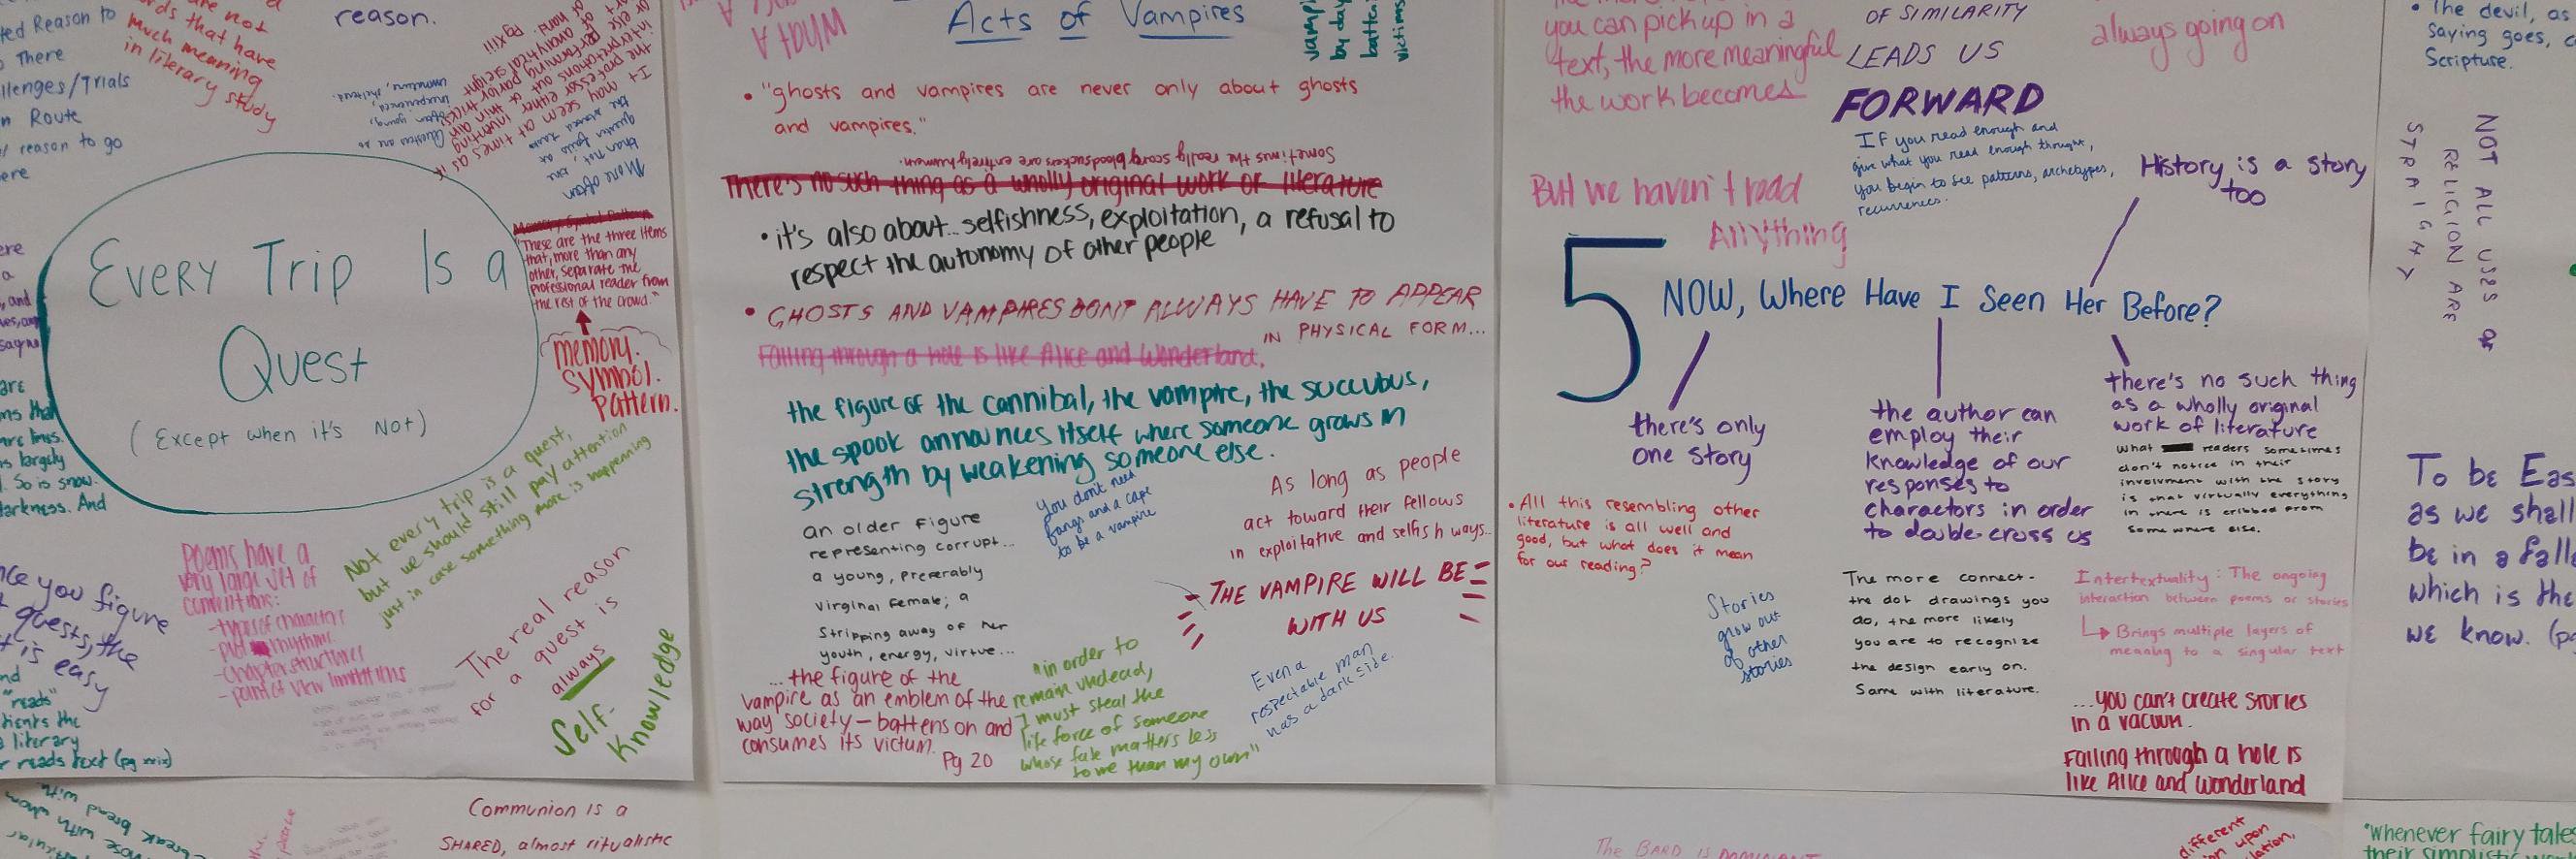 reason.
are not
words that have
much meaning
in literary study
ted Reason to
There
llenges/Trials
n Route
reason to go
ere
It
may seem at times as if
the professor is either
inventing
interpretations out of thin air
or else performing parlor tricks,
a kind of analytical sleight
of hand. Pg xiii
More often
than not,
the
Every Trip Is a
Quest
(Except when it's Not)
Memory Symbol Pattern
"These are the three items
that, more than any
other, separate the
professional reader from
the rest of the crowd."
memory.
symbol.
Pattern.
Not every trip is a quest,
but we should still pay attention
just in case something more is happening
Poems have a
very large set of
conventions:
- types of characters
- plot rhythms
- chapter structures
- point of view limitations
The real reason
for a quest is
always
Self-
Knowledge
are
s largely
. So is snow.
darkness. And
nce you figure
quests, the
t is easy
"reads"
the
literary
reads text (pg xxix)
break bread with
whom
Communion is a
SHARED, almost ritualistic
What A
Acts of Vampires
vampi
by day
batten
victims
• "ghosts and vampires are never only about ghosts
and vampires."
Sometimes the really scary bloodsuckers are entirely human.
There's no such thing as a wholly original work of literature
• it's also about... selfishness, exploitation, a refusal to
respect the autonomy of other people
• GHOSTS AND VAMPIRES DONT ALWAYS HAVE TO APPEAR
IN PHYSICAL FORM...
Falling through a hole is like Alice and Wonderland.
the figure of the cannibal, the vampire, the succubus,
the spook announces itself where someone grows in
strength by weakening someone else.
an older figure
representing corrupt...
a young, preferably
virginal female; a
stripping away of her
youth, energy, virtue...
You don't need
fangs and a cape
to be a vampire
As long as people
act toward their fellows
in exploitative and selfish ways...
THE VAMPIRE WILL BE
WITH US
...the figure of the
vampire as an emblem of the
way society - battens on and
consumes its victum.
Pg 20
"in order to
remain undead,
I must steal the
life force of someone
whose fate matters less
to me than my own"
Even a
respectable man
has a dark side.
you can pick up in a
text, the more meaningful
the work becomes
OF SIMILARITY
LEADS US
FORWARD
always going on
If you read enough and
give what you read enough thought,
you begin to see patterns, archetypes,
recurrences.
BUT we haven't read
Anything
History is a story
too
5 NOW, Where Have I Seen Her Before?
there's only
one story
the author can
employ their
knowledge of our
responses to
charactors in order
to double-cross us
there's no such thing
as a wholly original
work of literature
What readers sometimes
don't notice in their
involvment with the story
is that virtually everything
in there is cribbed from
some where else.
• All this resembling other
literature is all well and
good, but what does it mean
for our reading?
Stories
grow out
of other
stories
The more connect-
the dot drawings you
do, the more likely
you are to recognize
the design early on.
Same with literature.
Intertextuality: The ongoing
interaction between poems or stories
Brings multiple layers of
meaning to a singular text
...you can't create stories
in a vacuum.
Falling through a hole is
like Alice and Wonderland
• The devil, as
Saying goes, c
Scripture.
NOT ALL USES OF
RELIGION ARE
STRAIGHT
To be Eas
as we shall
be in a falle
which is the
we know. (p
The BARD is DOMINANT
different
upon
"Whenever fairy tales
their simplistic